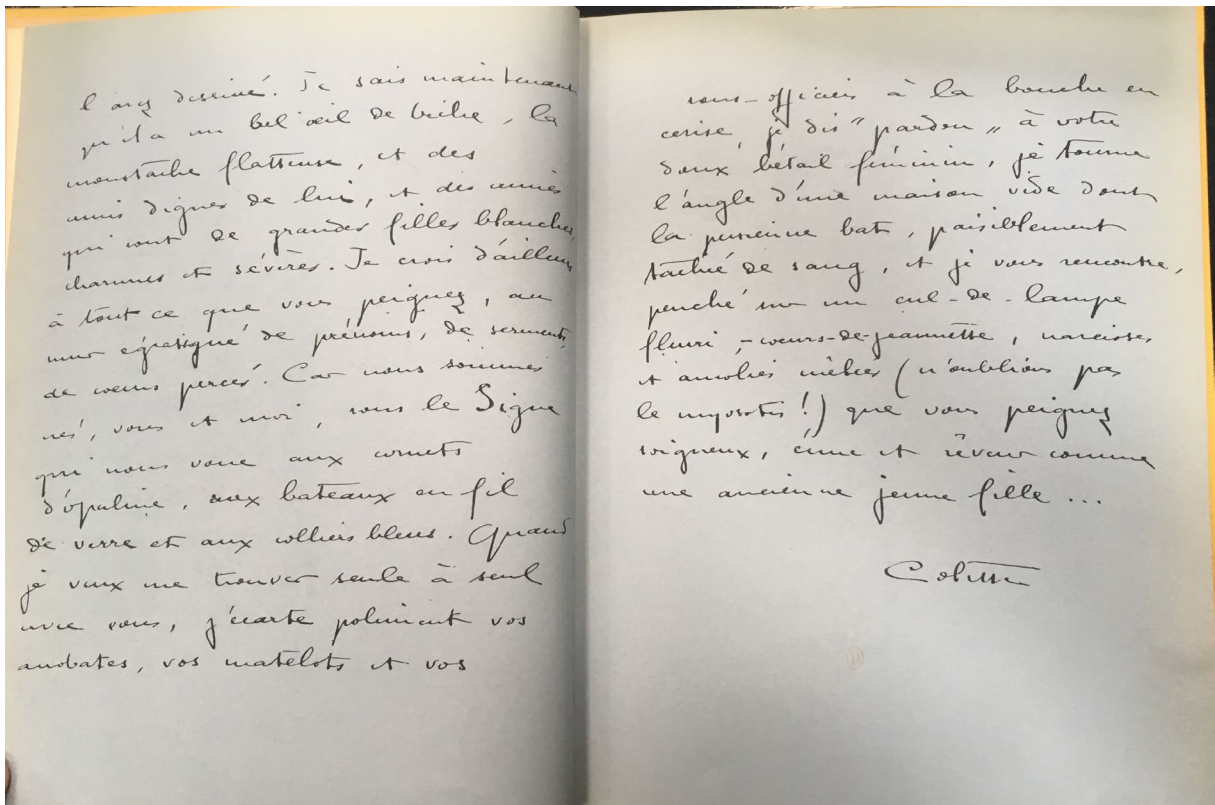 l'arcz dessiné. Je sais maintenant
qu'il a un bel œil de biche, la
moustache flatteuse, et des
amis dignes de lui, et des amies
qui sont de grandes filles blanches,
charnues et sévères. Je crois d'ailleurs
à tout ce que vous peignez, au
mur égratigné de prénoms, de serments,
de cœurs percés. Car nous sommes
nés, vous et moi, sous le Signe
qui nous voue aux cornets
d'opaline, aux bateaux en fil
de verre et aux colliers bleus. Quand
je veux me trouver seule à seul
avec vous, j'écarte poliment vos
acrobates, vos matelots et vos
sous-officiers à la bouche en
cerise, je dis "pardon" à votre
doux bétail féminin, je tourne
l'angle d'une maison vide dont
la persienne bat, paisiblement
taché de sang, et je vous rencontre,
penché sur un cul-de-lampe
fleuri, - cœurs-de-jeannette, narcisses
et ancolies mêlées (n'oublions pas
le myosotis!) que vous peignez
soigneux, ému et rêveur comme
une ancienne jeune fille ...
Colette